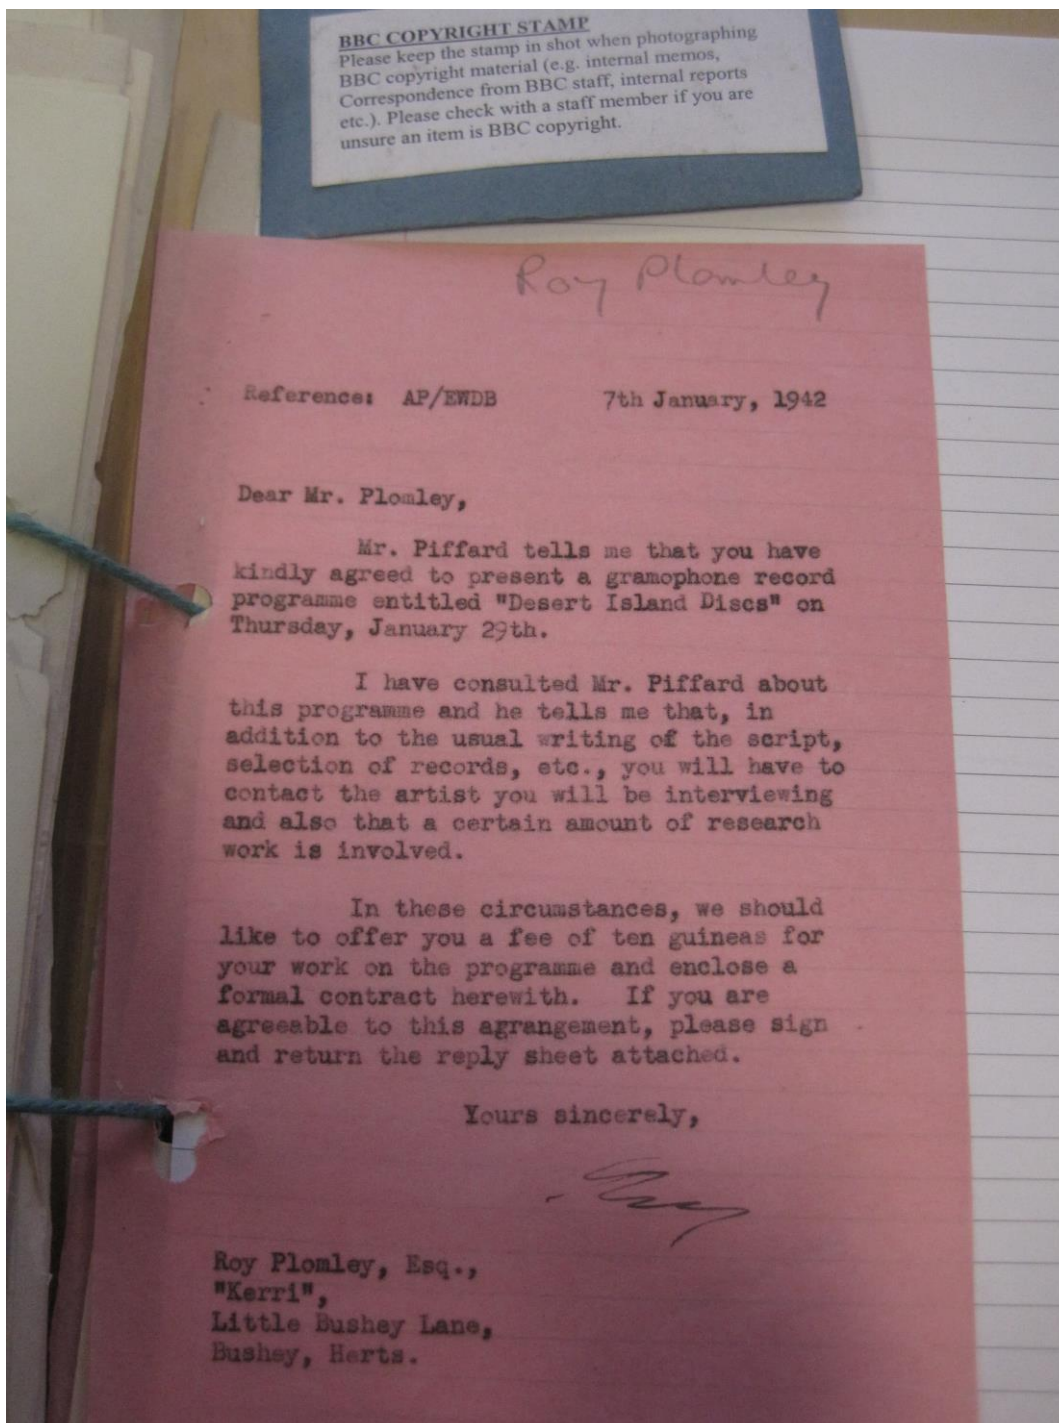 BBC COPYRIGHT STAMP
Please keep the stamp in shot when photographing
BBC copyright material (e.g. internal memos,
Correspondence from BBC staff, internal reports
etc.). Please check with a staff member if you are
unsure an item is BBC copyright.
Roy Plomley
Reference: AP/EWDB 7th January, 1942
Dear Mr. Plomley,
Mr. Piffard tells me that you have
kindly agreed to present a gramophone record
programme entitled "Desert Island Discs" on
Thursday, January 29th.
I have consulted Mr. Piffard about
this programme and he tells me that, in
addition to the usual writing of the script,
selection of records, etc., you will have to
contact the artist you will be interviewing
and also that a certain amount of research
work is involved.
In these circumstances, we should
like to offer you a fee of ten guineas for
your work on the programme and enclose a
formal contract herewith. If you are
agreeable to this agrangement, please sign
and return the reply sheet attached.
Yours sincerely,
Roy Plomley, Esq.,
"Kerri",
Little Bushey Lane,
Bushey, Herts.